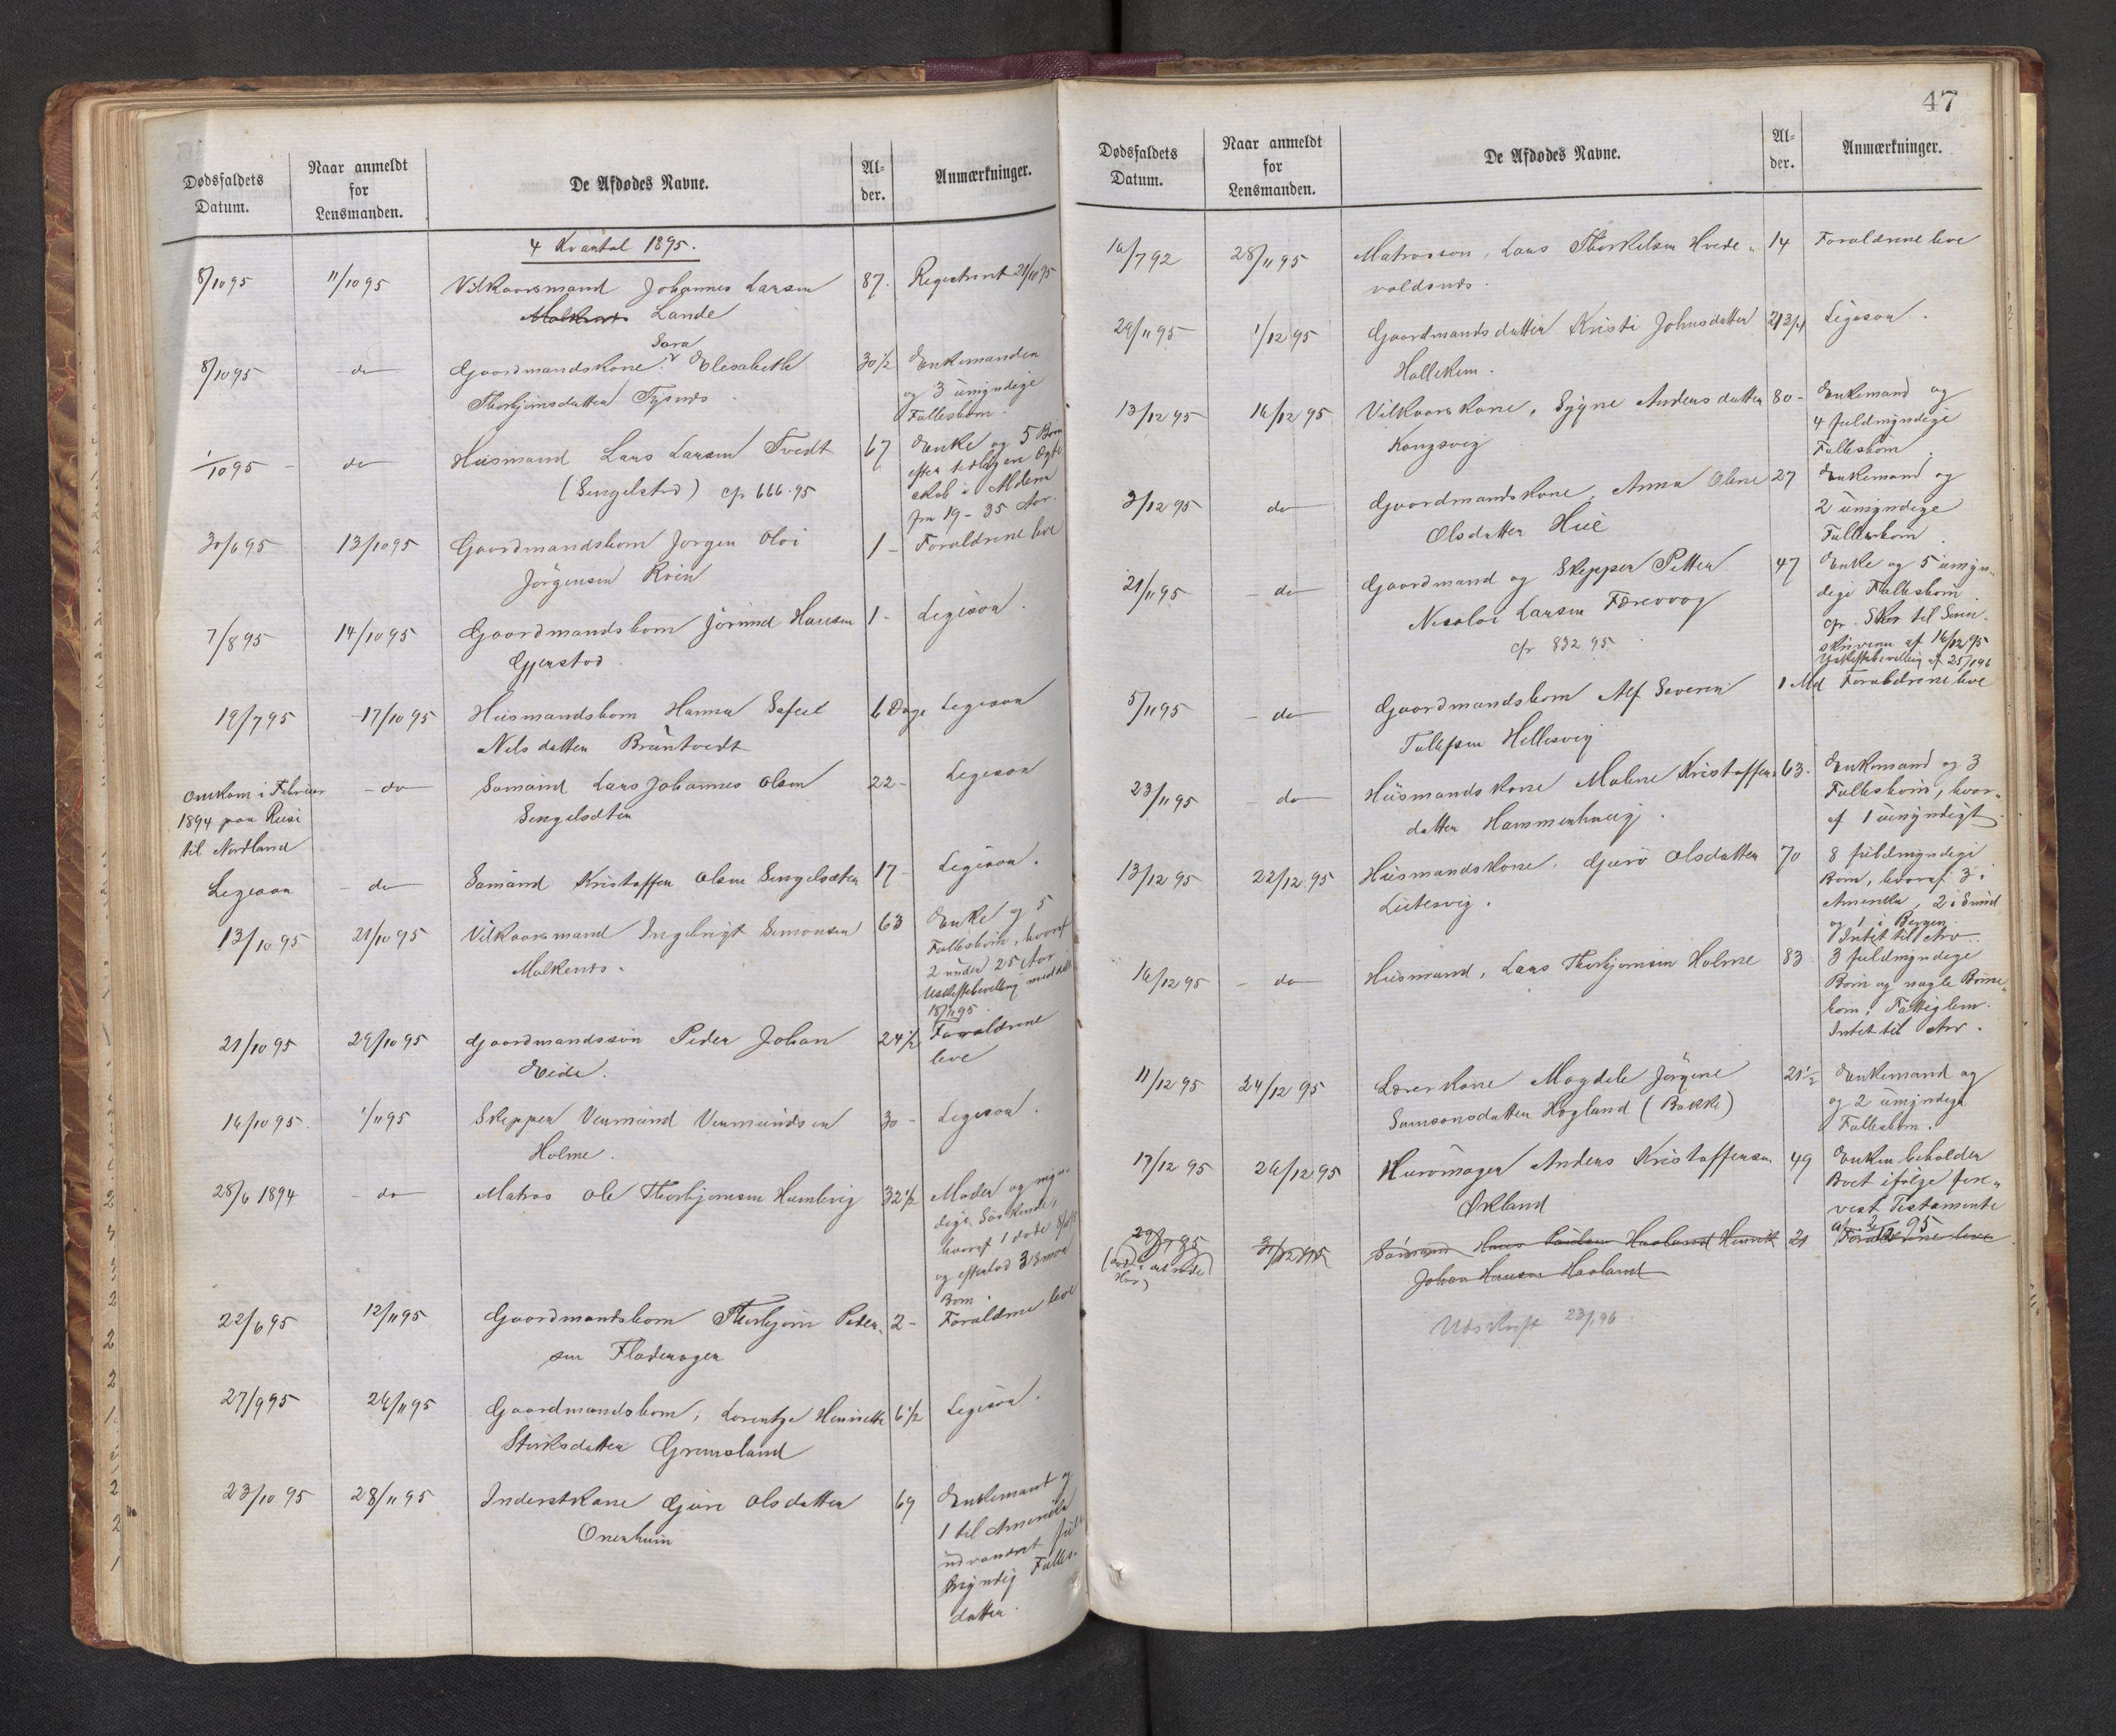 Dødsfaldets
Datum.
Naar anmeldt
for
Lensmanden.
De Afdødes Navne.
Al-
der.
Anmærkninger.
4 Kvartal 1895.
8/10 95
11/10 95
Vilkaarsmand Johannes Larsen
Lande
87.
Registreret 21/10 95
8/10 95
do
Sara
Gaardmandskone Elisabeth
Thorbjørnsdatter Tysnes
30 1/2
Enkemanden
og 3 umyndige
Fællesbørn.
1/10 95
do
Husmand Lars Larsen Tvedt
(Engelsted) cfr 666.95
67
Enke og 5 Børn
efter tidligere Ægte
skab i Alderen
fra 19-35 Aar.
30/6 95
13/10 95
Gaardmandsbarn Jørgen Olai
Jørgensen Kvien
1 -
Forældrene leve
7/8 95
14/10 95
Gaardmandsbarn Hansen
Gjerstad
1 -
Ligesaa.
19/7 95
17/10 95
Husmandsbarn Hanna
Nilsdatter Bruntvedt
6 Dage
Ligesaa
Omkom i Februar
1894 paa Reise
til Nordland
do
Sømand Lars Johannes Olsen
Engelsæter
22 -
Ligesaa
Ligesaa
do
Sømand Kristoffer Olsen Engelsæter
17 -
Ligesaa.
13/10 95
21/10 95
Vilkaarsmand Ingebrigt Simonsen
Malkenes.
63
Enke og 5
Fællesbørn, hvoraf
2 under 25 Aar
Uskiftebevilling meddelt
18/11 95
21/10 95
29/10 95
Gaardmandssøn Peder Johan
Eide.
24 1/2
Forældrene
leve
16/10 95
1/11 95
Skipper Vermund Vermundsen
Holme.
30 -
Ligesaa.
28/6 1894
do
Matros Ole Thorbjørnsen Humlevig
32 1/2
Moder og myn-
dige Søskende,
hvoraf 1 døde
og efterlod 3 smaa
Børn.
22/6 95
12/11 95
Gaardmandsbarn Thorbjørn Peder-
sen Fladerager
2 -
Forældrene leve
27/9 95
26/11 95
Gaardmandsbarn, Lorentze Henriette
Størksdatter Grimsland
6 1/2
Ligesaa.
23/10 95
28/11 95
Inderstkone Guro Olsdatter
Onarheim
69
Enkemand og
1 til Amerika
udvandret fuld
myndig Fælles-
datter.
47
Dødsfaldets
Datum.
Naar anmeldt
for
Lensmanden.
De Afdødes Navne.
Al-
der.
Anmærkninger.
16/7 92
28/11 95
Matrossøn, Lars Thorkelsen Hvede-
voldsnes.
14
Forældrene leve
29/11 95
1/12 95
Gaardmandsdatter Kristi Johnsdatter
Hallekim.
21 3/4
Ligesaa.
13/12 95
16/12 95
Vilkaarskone, Sygne Andersdatter
Kongsvig
80 -
Enkemand og
4 fuldmyndige
Fællesbørn
3/12 95
do
Gaardmandskone, Anna Oline
Olsdatter Hue
27
Enkemand og
2 umyndige
Fællesbørn.
21/11 95
do
Gaardmand og Skipper Petter
Nicolai Larsen Færevaag
cfr 832 95
47
Enke og 5 umyn-
dige Fællesbørn.
cfr. Skr til Soren-
skriveren af 16/12 95
Uskiftebevilling af 25/1 96
5/11 95
do
Gaardmandsbarn Alf Severin
Tollefsen Hellesvig
1 Md
Forældrene leve
23/11 95
do
Husmandskone Malene Kristoffers-
datter Hammerhaug.
63.
Enkemand og 3
Fællesbørn, hvor-
af 1 umyndigt
13/12 95
22/12 95
Husmandskone. Guro Olsdatter
Lutesvig.
70
8 fuldmyndige
Børn, hvoraf 3 i
Amerika, 2 i Sund
og 1 i Bergen.
Intet til Arv.
16/12 95
do
Husmand, Lars Thorbjørnsen Holme
83
3 fuldmyndige
Børn og nogle Børne-
børn. Fattiglem.
Intet til Arv.
11/12 95
24/12 95
Lærerkone Magdele Jørgine
Samsonsdatter Høgland (Bakke)
21 1/2
Enkemand og
og 2 umyndige
Fællesbørn.
17/12 95
26/12 95
Anders Kristoffersen
Økland
49
Enken beholder
Boet ifølge fore-
vist Testamente
29/7 95
31/12 95
Sømand Hans Paulsen Haaland Henrik
Johan Hansen Haaland
21
Forældrene leve
Udskrift 23/1 96.